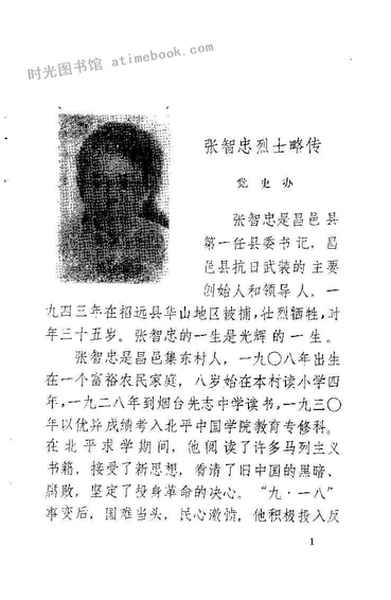 时光图书馆 atimebook.com
张智忠烈士略传
党史办
张智忠是昌邑县
第一任县委书记，昌
邑县抗日武装的主要
创始人和领导人。一
九四三年在招远县华山地区被捕，壮烈牺牲，时
年三十五岁。张智忠的一生是光辉的一生。
张智忠是昌邑集东村人，一九〇八年出生
在一个富裕农民家庭，八岁始在本村读小学四
年，一九二八年到烟台先志中学读书，一九三〇
年以优异成绩考入北平中国学院教育专修科。
在北平求学期间，他阅读了许多马列主义
书籍，接受了新思想，看清了旧中国的黑暗、
腐败，坚定了投身革命的决心。“九·一八”
事变后，国难当头，民心激愤，他积极投入反
1